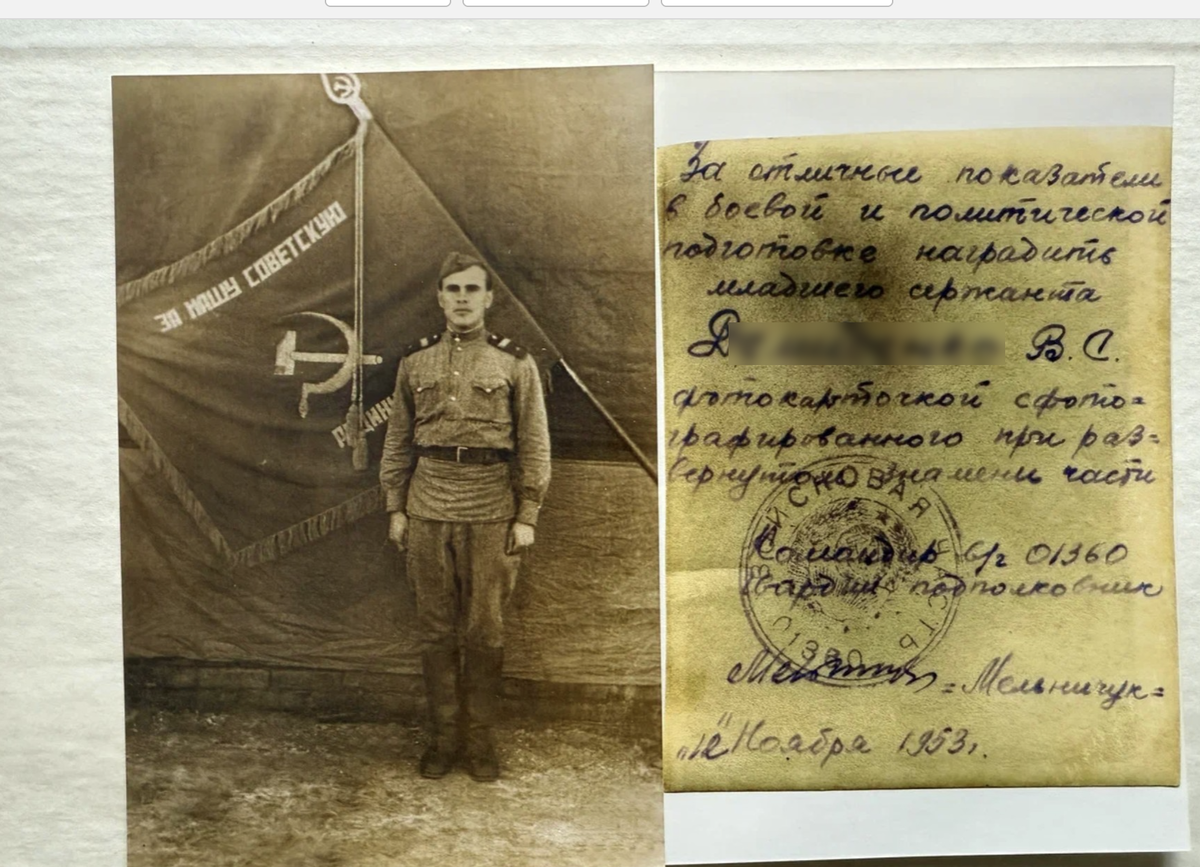 ЗА НАШУ СОВЕТСКУЮ
РОДИНУ
За отличные показатели
в боевой и политической
подготовке наградить
младшего сержанта
В. С.
фотокарточкой сфото=
графированного при раз=
вернутом Знамени части
Командир в/ч 01360
Гвардии подполковник
=Мельничук=
"12" Ноября 1953г.
ВОЙСКОВАЯ ЧАСТЬ
01360